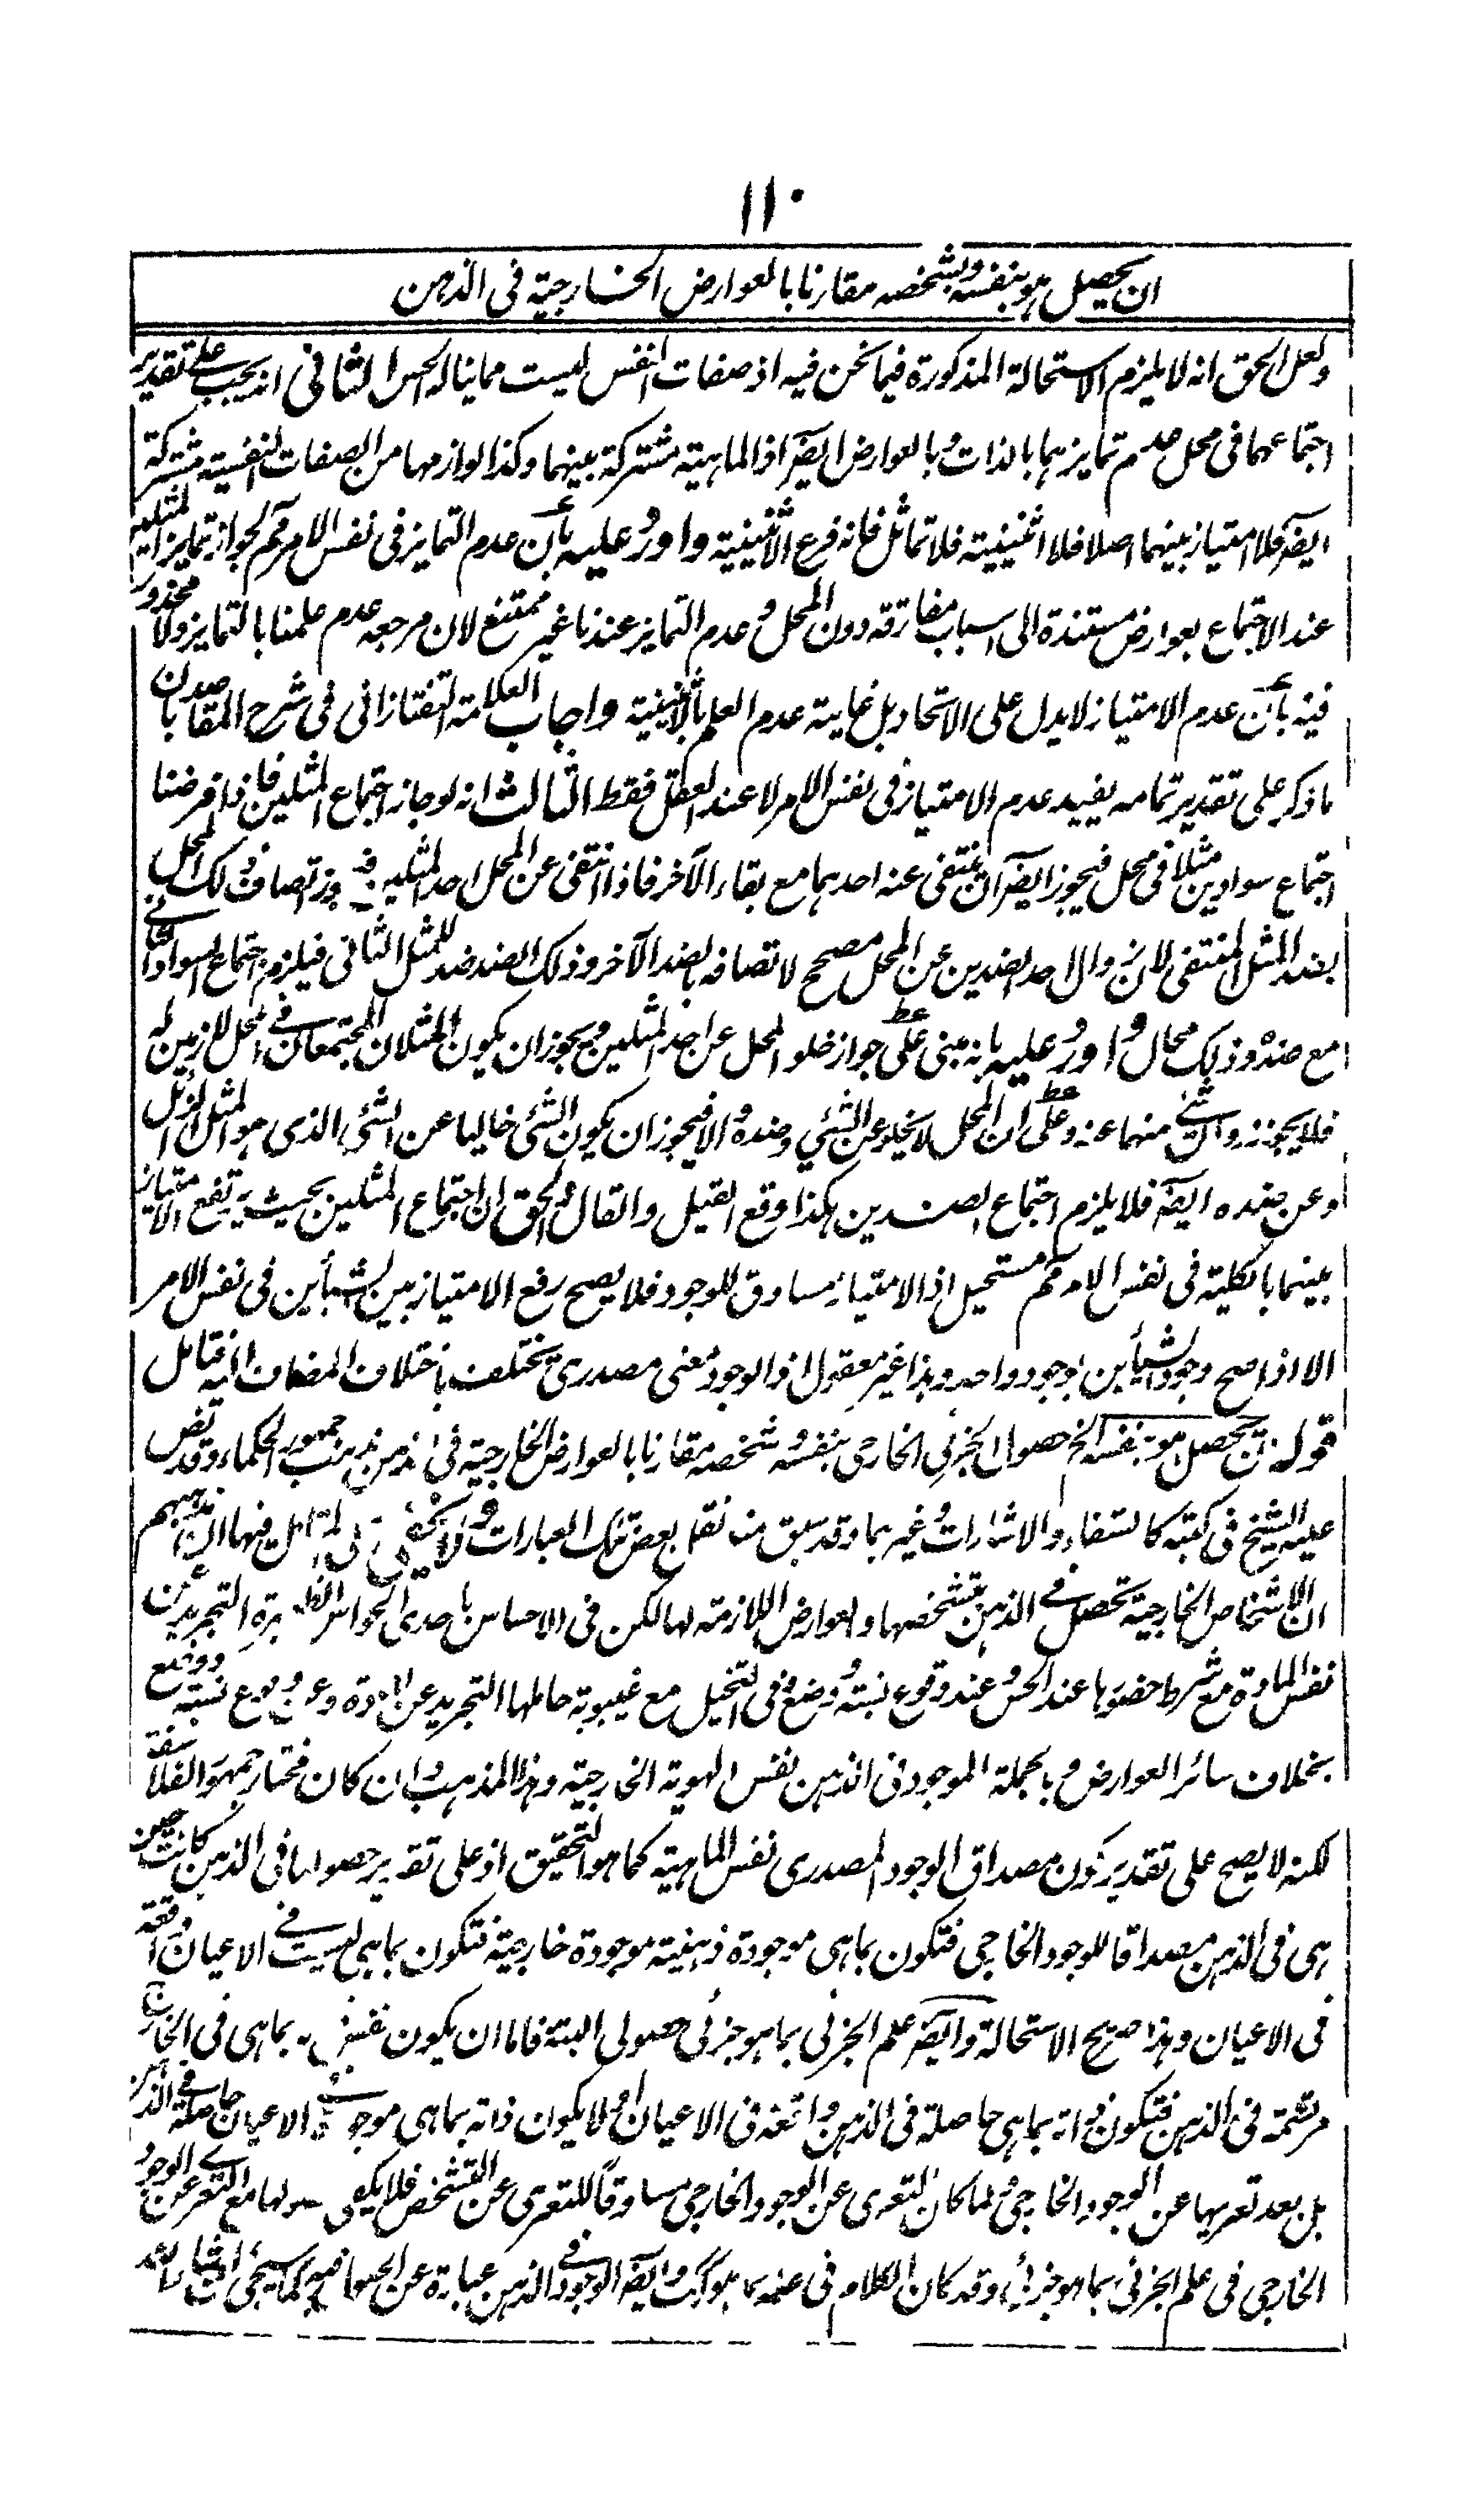 ١١٠
ان يحصل هو بنفسه وبشخصه مقارنا بالعوارض الخارجية فى الذهن
ولعل الحق انه لا يلزم الاستحالة المذكورة فيما نحن فيه اذ صفات النفس ليست مما يناله الحس الثانى انه يجب على تقدير
اجتماعهما فى محل عدم تمايزهما بالذات وبالعوارض ايضا اذ الماهية مشتركة بينهما وكذا لوازمها من الصفات النفسية مشتركة
ايضا فلا امتياز بينهما اصلا فلا اثنينية فلا تماثل فانه فرع الاثنينية واورد عليه بأن عدم التمايز فى نفس الامر مم لجواز تمايز المثلين
عند الاجتماع بعوارض مستندة الى اسباب مفارقة دون المحل وعدم التمايز عندنا غير ممتنع لان مرجعه عدم علمنا بالتمايز ولا محذور
فيه بأن عدم الامتياز لا يدل على الاتحاد بل غايته عدم العلم بالاثنينية واجاب العلامة التفتازانى فى شرح المقاصد بان
ما ذكر على تقدير تمامه يفيد عدم الامتياز فى نفس الامر لا عند العقل فقط الثالث انه لو جاز اجتماع المثلين فاذا فرضنا
اجتماع سوادين مثلا فى محل فيجوز ايضا ان ينتفى عنه احدهما مع بقاء الآخر فاذا انتفى عن المحل احد المثلين اتصاف ذلك المحل
بضد المثل المنتفى لان زوال احد الضدين عن المحل مصحح لاتصافه بالضد الآخر وذلك الضد ضد للمثل الثانى فيلزم اجتماع السواد الثانى
مع ضده وذلك محال واورد عليه بانه مبنى على جواز خلو المحل عن احد المثلين ويجوز ان يكون المثلان المجتمعان فى المحل لازمين له
فلا يجوز زوال شئ منهما عنه وعلى ان المحل لا يخلو عن الشئ وضده والا فيجوز ان يكون الشئ خاليا عن الشئ الذى هو المثل الزائل
وعن ضده ايضا فلا يلزم اجتماع الضدين هكذا وقع القيل والقال والحق ان اجتماع المثلين بحيث يرتفع الامتياز
بينهما بالكلية فى نفس الامر مستحيل اذ الامتياز مساوق للوجود فلا يصح رفع الامتياز بين الشيأين فى نفس الامر
الا اذا صح وجود الشيأين بوجود واحد وهذا غير معقول اذ الوجود معنى مصدرى يختلف باختلاف المضاف اليه تامل
قوله ان يحصل هو بنفسه الخ حصول الجزئى الخارجى بنفسه وشخصه مقارنا بالعوارض الخارجية فى الذهن مذهب جمهور الحكماء وقد نص
عليه الشيخ فى كتبه كالشفاء والاشارات وغيرهما وقد سبق منا نقل بعض تلك العبارات ولا يخفى فيها ان مذهبهم
ان الاشخاص الخارجية تحصل فى الذهن بتشخصها والعوارض اللازمة لها لكن فى الاحساس باحدى الحواس الظاهرة التجريد عن
نفس المادة مع شرط حضورها عند الحس وعند وقوع نسبة وضع وفى التخيل مع غيبوبة حاملها التجريد عن المادة وعن وقوع نسبة ووضع
بخلاف سائر العوارض وبالجملة الموجود فى الذهن نفس الهوية الخارجية وهذا المذهب وان كان مختار جمهور الفلاسفة
لكنه لا يصح على تقدير كون مصداق الوجود المصدرى نفس الماهية كما هو التحقيق اذ على تقدير حصولها فى الذهن كانت حين
هى فى الذهن مصداقا للوجود الخارجى فتكون بما هى موجودة ذهنية موجودة خارجية فتكون بما هى ليست فى الاعيان واقعة
فى الاعيان وهذا صريح الاستحالة وايضا علم الجزئى بما هو جزئى حصولى البتة فاما ان يكون بما هى فى الخارج
مرتسمة فى الذهن فتكون ذاته بما هى حاصلة فى الذهن واقعة فى الاعيان او لا يكون ذاته بما هى فى الاعيان حاصلة فى الذهن
بل بعد تعريها عن الوجود الخارجى ولما كان التعرى عن الوجود الخارجى مساوقا للتعرى عن التشخص فلا يكفى مع التعرى عن الوجود
الخارجى فى علم الجزئى بما هو جزئى وقد كان الكلام فى علمه بما هو كذلك وايضا الوجود فى الذهن عبارة عن كما سيجئ انشاء الله